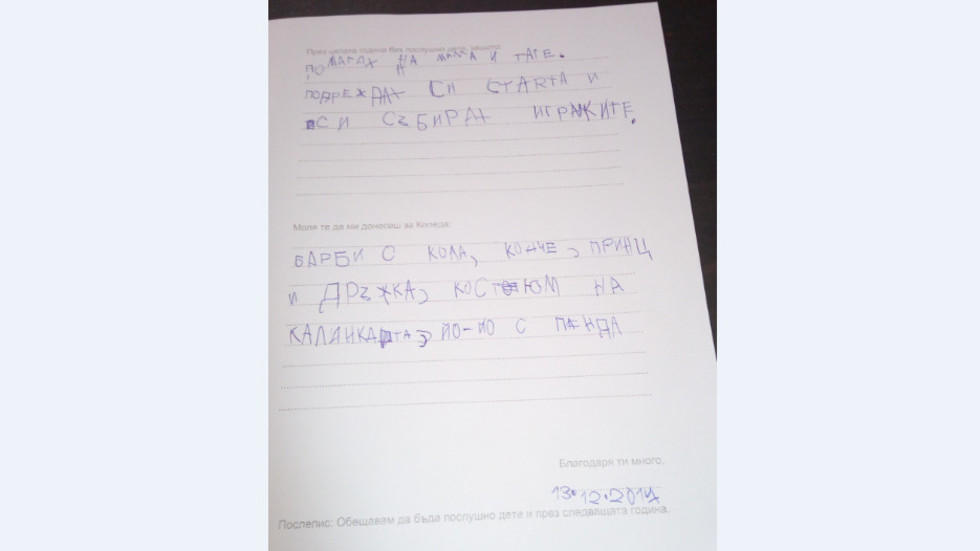 През цялата година бях послушно дете, защото:
ПОМАГАХ НА МАМА И ТАТЕ.
ПОДРЕЖДАХ СИ СТАЯТА И
СИ СЪБИРАХ ИГРАЖКИТЕ.
Моля те да ми донесеш за Коледа:
БАРБИ С КОЛА, КОНЧЕ, ПРИНЦ
И ДРЪЖКА, КОСТЮМ НА
КАЛИНКАТА, ЙО-ЙО С ПАНДА
Благодаря ти много,
13.12.2017
Послепис: Обещавам да бъда послушно дете и през следващата година.